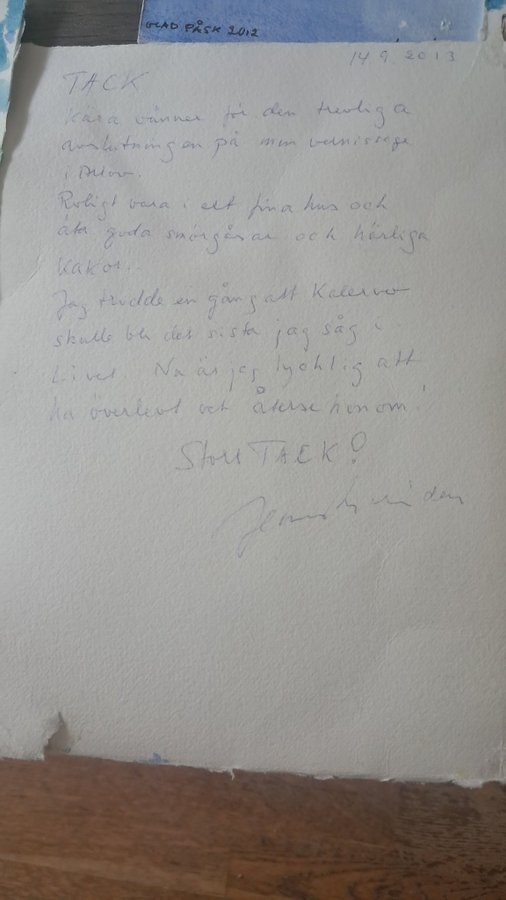 GLAD PÅSK 2012
14 9 2013
TACK
Kära vänner för den trevliga
avslutningen på min vernissage
i
Roligt vara i ert fina hus och
äta goda smörgåsar och härliga
kakor.
Jag trodde en gång att Kalervo
skulle bli det sista jag såg i
Livet Nu är jag lycklig att
ha överlevt och återse honom!
Stort TACK!